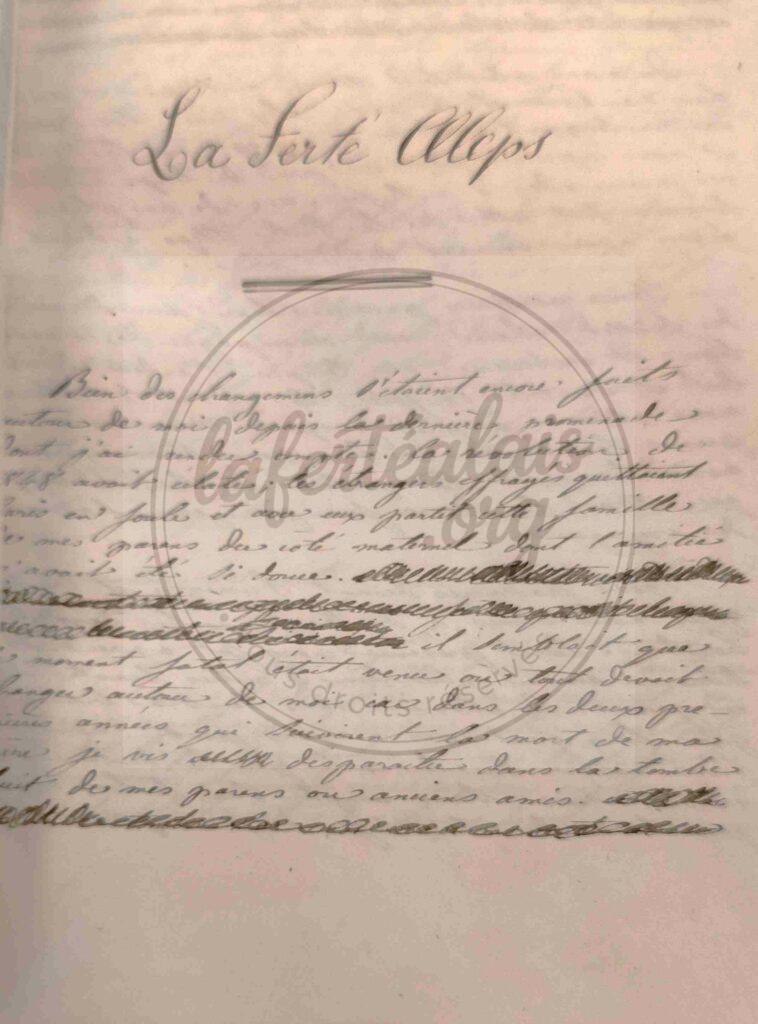 La Ferté Aleps
Bien des changemens s'étaient encore faits
autour de moi depuis la dernière promenade
dont j'ai rendu compte. la révolution de
1848 avait éclaté; les étrangers effrayés quittaient
Paris en foule et avec eux partit cette famille
de mes parens du coté maternel dont l'amitié
m'avait été si douce.
il semblait que
le moment fatal était venu où tout devait
changer autour de moi car dans les deux pre-
mières années qui suivirent la mort de ma
je vis disparaitre dans la tombe
huit de mes parens ou anciens amis.
lafertéalais
.org
tous droits réservés